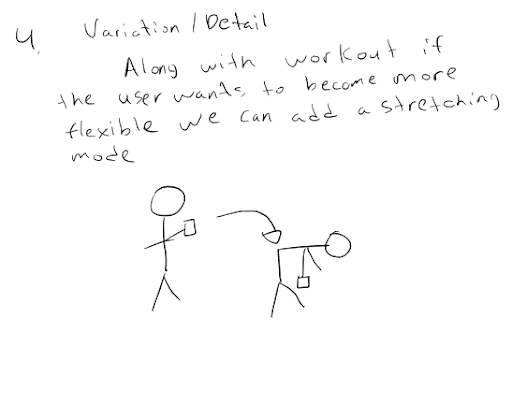 4. Variation / Detail
Along with workout if
the user wants to become more
flexible we can add a stretching
mode